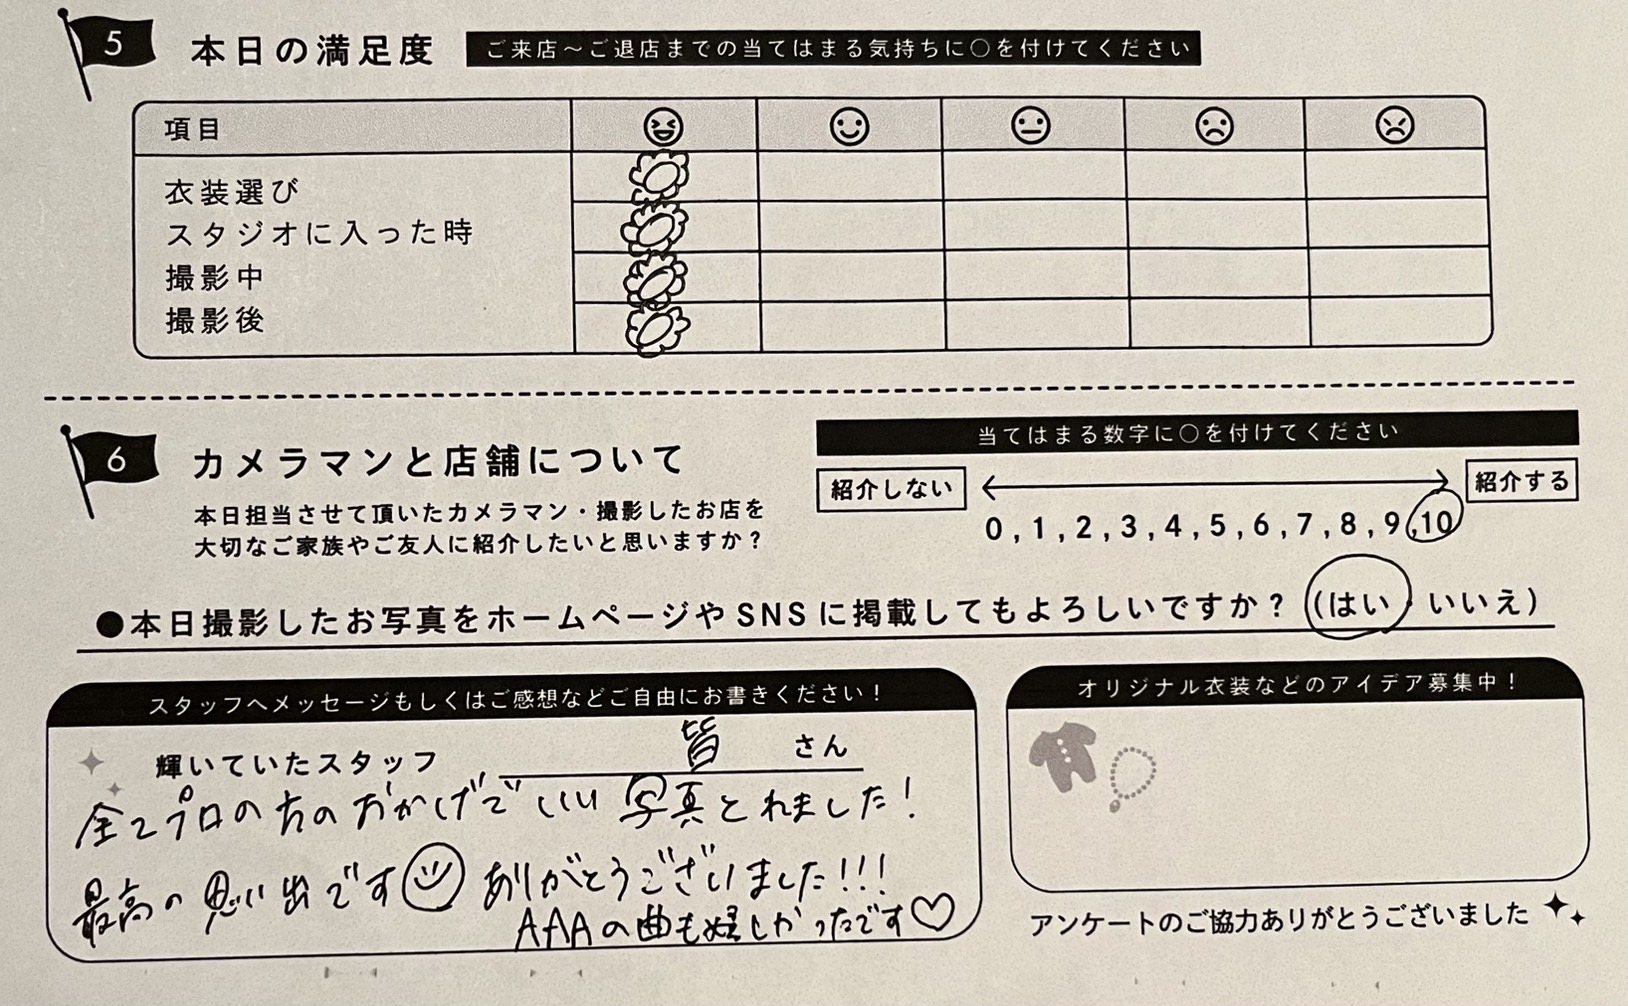 5 本日の満足度 ご来店〜ご退店までの当てはまる気持ちに○を付けてください
項目
衣装選び
スタジオに入った時
撮影中
撮影後
6 カメラマンと店舗について
本日担当させて頂いたカメラマン・撮影したお店を
大切なご家族やご友人に紹介したいと思いますか？
当てはまる数字に○を付けてください
紹介しない 紹介する
0,1,2,3,4,5,6,7,8,9,10
●本日撮影したお写真をホームページやSNSに掲載してもよろしいですか？（はい・いいえ）
スタッフへメッセージもしくはご感想などご自由にお書きください！
輝いていたスタッフ 皆 さん
全てプロの方のおかげでいい写真とれました！
最高の思い出です ありがとうございました!!!
AAAの曲も嬉しかったです♡
オリジナル衣装などのアイデア募集中！
アンケートのご協力ありがとうございました